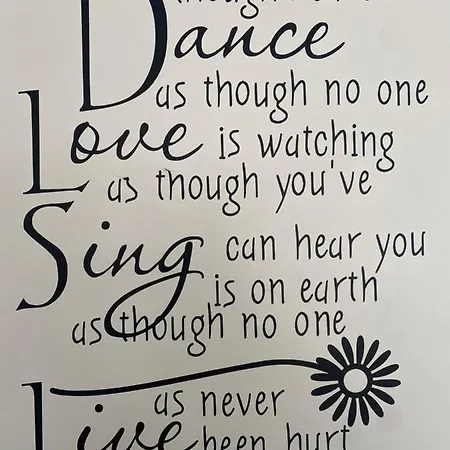 though no one
Dance
as though no one
Love is watching
as though you've
Sing can hear you
is on earth
as though no one
as never
Live been hurt